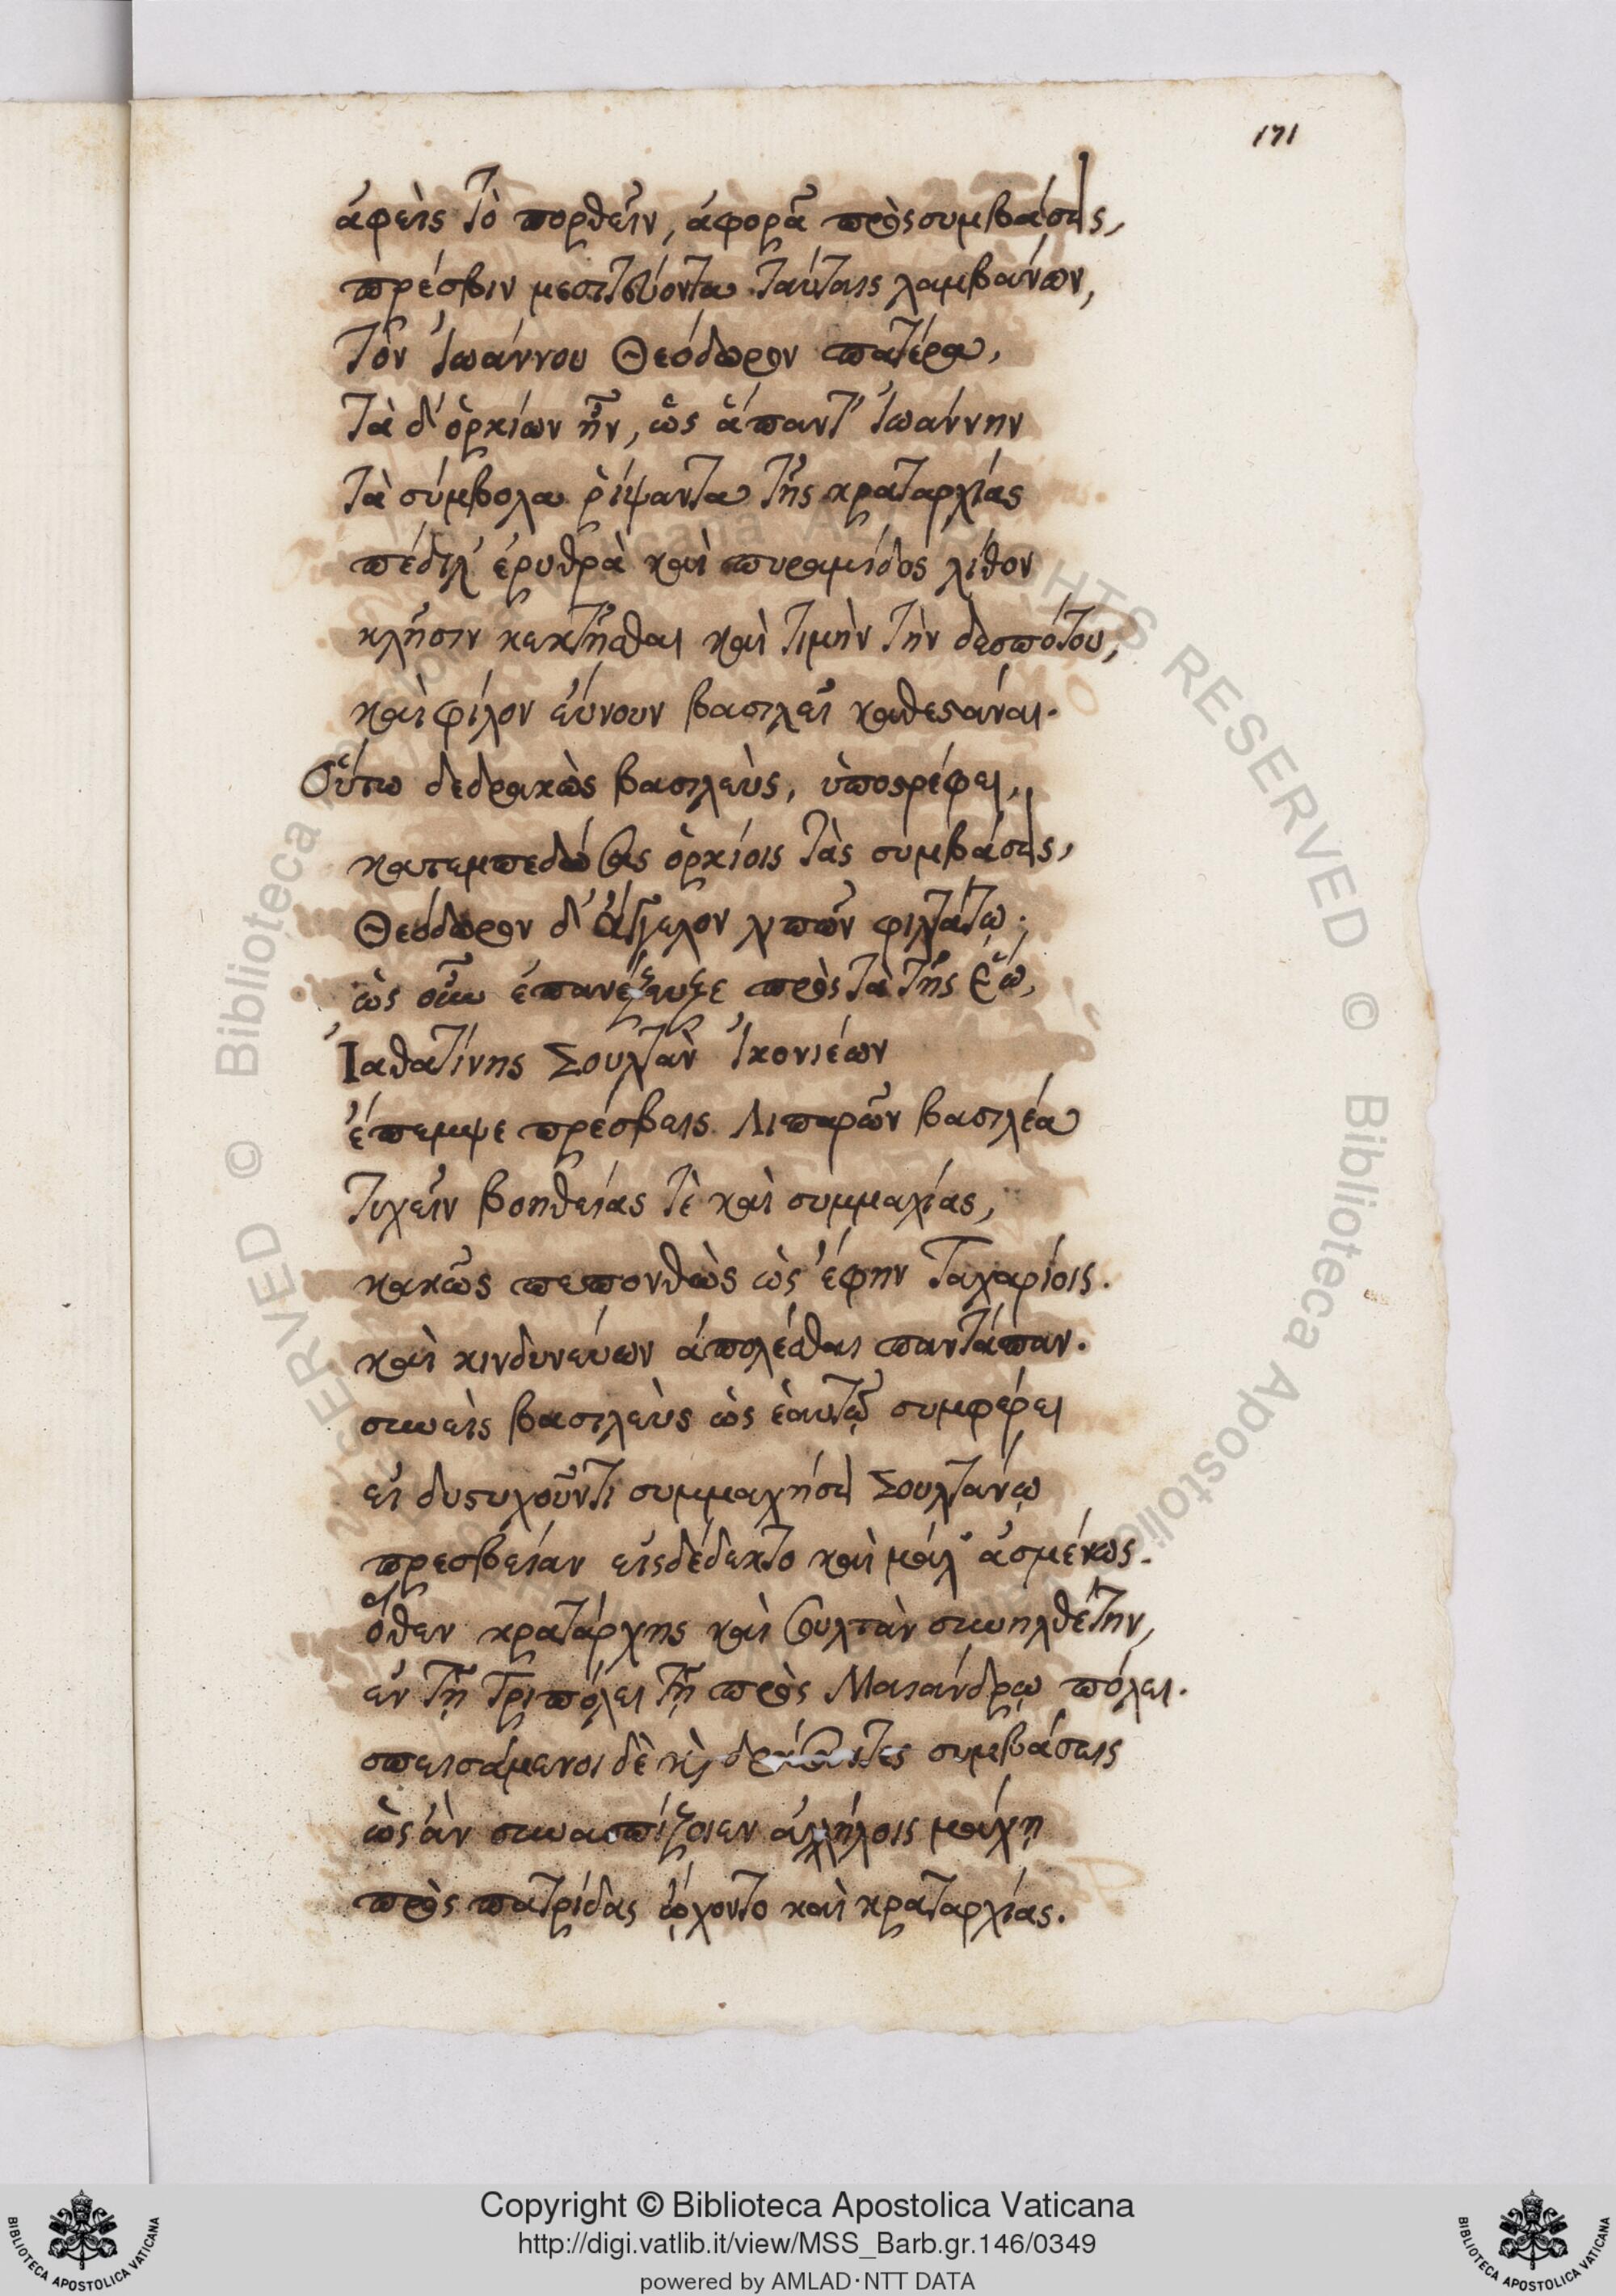 171
ἀφεὶς τὸ πορθεῖν, ἀφορᾷ πρὸς συμβάσεις,
πρέσβιν μεσιτεύοντα ταύταις λαμβάνων,
τὸν Ἰωάννου Θεόδωρον πατέρα,
τὰ δ' ὁρκίων ἦν, ὡς ἅπαντ' Ἰωάννην
τὰ σύμβολα ῥίψαντα τῆς κραταρχίας
πέδιλ' ἐρυθρὰ καὶ πυραμίδος λίθον
κλῆσιν κεκτῆσθαι καὶ τιμὴν τὴν δεσπότου,
καὶ φίλον εὔνουν βασιλεῖ καθεστάναι.
Οὕτω δεδρακὼς βασιλεὺς, ὑποστρέφει,
κατεμπεδώσας ὁρκίοις τὰς συμβάσεις,
Θεόδωρον δ' Ἄγγελον λιπὼν φιλτάτῳ.
ὡς οὖν ἐπανέζευξε πρὸς τὰ τῆς Ἕω,
Ἰαθατίνης Σουλτὰν Ἰκονιέων
ἔπεμψε πρέσβεις Λιπαρῶν βασιλέα
τυχεῖν βοηθείας τὲ καὶ συμμαχίας,
κακῶς πεπονθὼς ὡς ἔφην Ταχαρίοις.
καὶ κινδυνεύων ἀπολέσθαι παντάπαν.
συνεὶς βασιλεὺς ὡς ἑαυτῷ συμφέρει
εἰ δυστυχοῦντι συμμαχήσει Σουλτάνῳ
πρεσβείαν εἰσδέδεκτο καὶ μάλ' ἀσμένως.
ὅθεν κρατάρχης καὶ σουλτὰν συνηλθέτην,
ἐν τῇ Τριπόλει τῇ πρὸς Μαιάνδρῳ πόλει.
σπεισάμενοι δὲ κὶ δράσαντες συμβάσεις
ὡς ἂν συνασπίζοιεν ἀλλήλοις μάχῃ
πρὸς πατρίδας ᾤχοντο καὶ κραταρχίας.
Copyright © Biblioteca Apostolica Vaticana
http://digi.vatlib.it/view/MSS_Barb.gr.146/0349
powered by AMLAD·NTT DATA
BIBLIOTECA APOSTOLICA VATICANA
BIBLIOTECA APOSTOLICA VATICANA